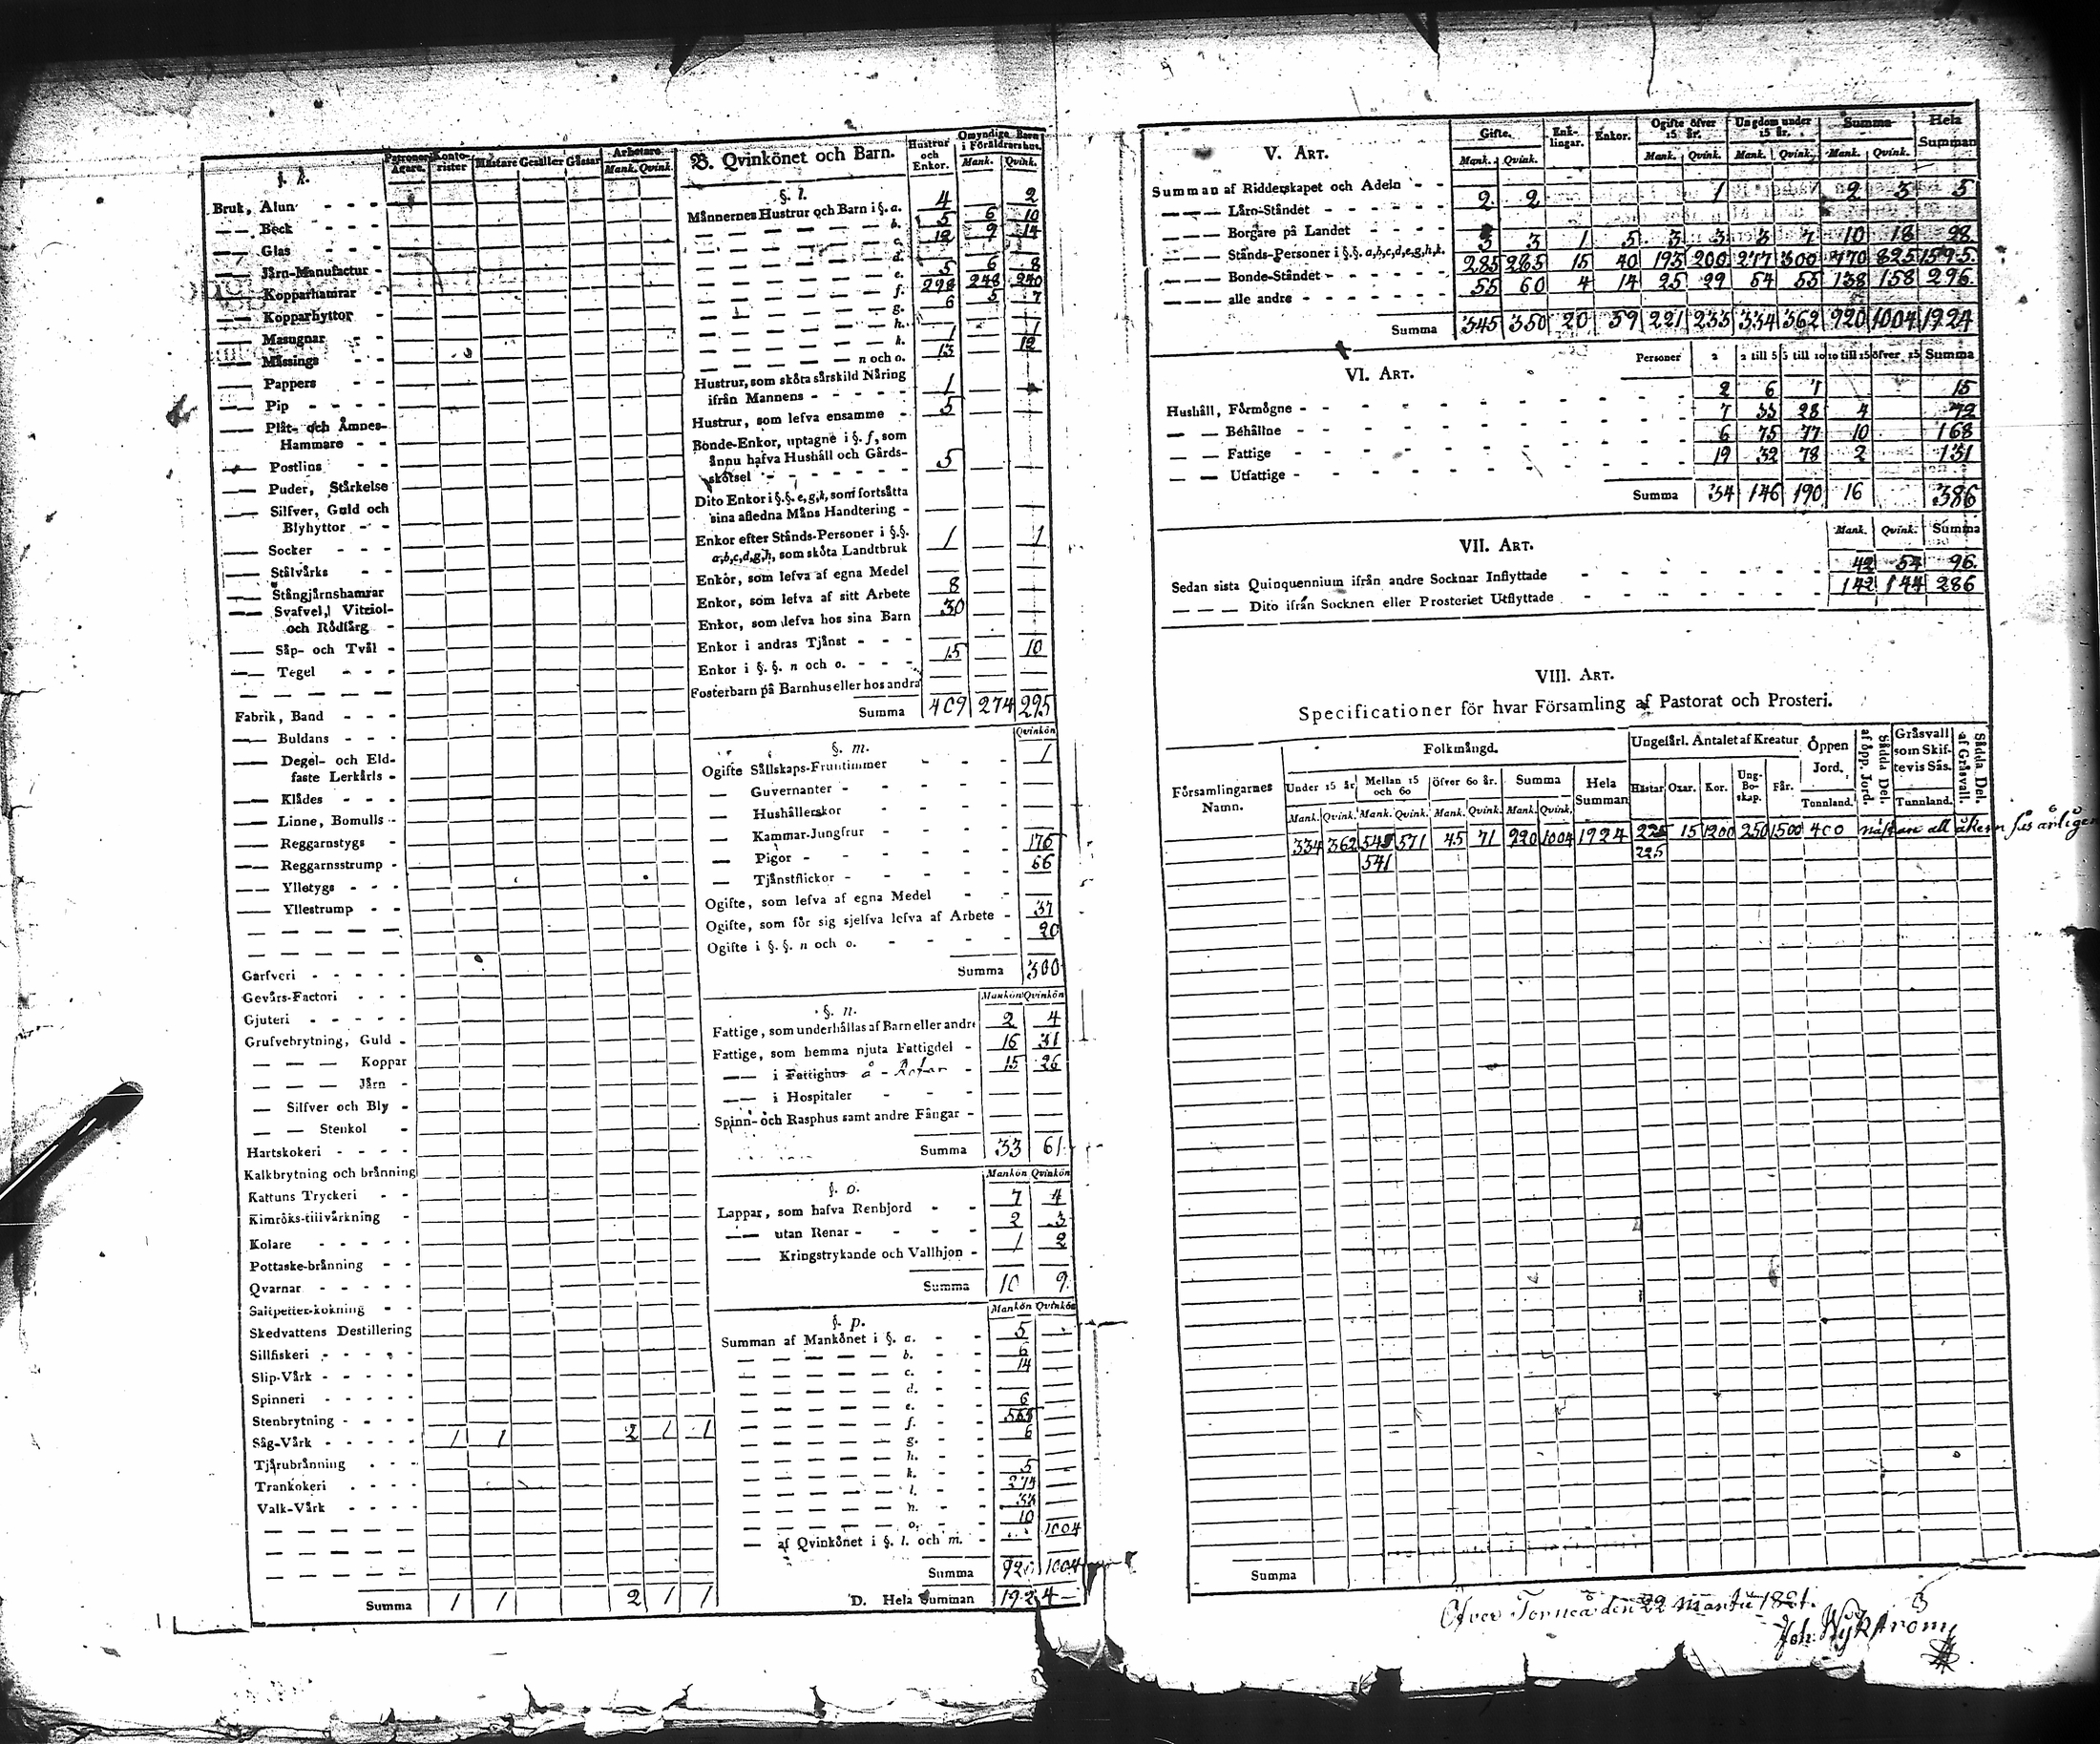 §. k.
Patroner Ägare. Konto-rister Mästare Gesäller Gåssar Arbetare Mank. Qvink.
Bruk, Alun
— Beck
— Glas
— Järn-Manufactur
— Kopparhamrar
— Kopparhyttor
— Masugnar
— Mässings
— Pappers
— Pip
— Plåt- och Ämnes-
Hammare
— Postlins
— Puder, Stärkelse
— Silfver, Guld och
Blyhyttor
— Socker
— Stålvärks
— Stångjärnshamrar
— Svafvel, Vitriol-
och Rödfärg
— Såp- och Tvål
— Tegel
Fabrik, Band
— Buldans
— Degel- och Eld-
faste Lerkärls
— Klädes
— Linne, Bomulls
— Reggarnstygs
— Reggarnsstrump
— Ylletygs
— Yllestrump
Garfveri
Gevärs-Factori
Gjuteri
Grufvebrytning, Guld
— — — Koppar
— — — Järn
— Silfver och Bly
— — Stenkol
Hartskokeri
Kalkbrytning och bränning
Kattuns Tryckeri
Kimröks-tillvärkning
Kolare
Pottaske-bränning
Qvarnar
Saltpetter-kokning
Skedvattens Destillering
Sillfiskeri
Slip-Värk
Spinneri
Stenbrytning
Såg-Värk 1 1 2 1 1
Tjärubränning
Trankokeri
Valk-Värk
Summa 1 1 2 1 1
B. Qvinkönet och Barn. Hustrur och Enkor. Omyndige Barn i Föräldrarshus. Mank. Qvink.
§. l.
Männernes Hustrur och Barn i §. a. 4 2
b. 5 6 10
c. 12 9 14
d.
e. 5 6 8
f. 298 248 240
g. 6 5 7
h.
k. 1 1
n och o. 13 12
Hustrur, som sköta särskild Näring
ifrån Mannens 1
Hustrur, som lefva ensamme 5
Bonde-Enkor, uptagne i §. f, som
ännu hafva Hushåll och Gårds-
skötsel 5
Dito Enkor i §.§. e, g, k, som fortsätta
sina afledna Mäns Handtering
Enkor efter Stånds-Personer i §.§.
a, b, c, d, g, h, som sköta Landtbruk 1 1
Enkor, som lefva af egna Medel
Enkor, som lefva af sitt Arbete 8
Enkor, som lefva hos sina Barn 30
Enkor i andras Tjänst
Enkor i §.§. n och o. 15 10
Fosterbarn på Barnhus eller hos andra
Summa 409 274 295
§. m. Qvinkön
Ogifte Sällskaps-Fruntimmer 1
— Guvernanter
— Hushållerskor
— Kammar-Jungfrur
— Pigor 176
— Tjänstflickor 66
Ogifte, som lefva af egna Medel
Ogifte, som för sig sjelfva lefva af Arbete 37
Ogifte i §.§. n och o. 20
Summa 300
§. n. Mankön Qvinkön
Fattige, som underhållas af Barn eller andre 2 4
Fattige, som hemma njuta Fattigdel 16 31
— i Fattighus å - Rotar 15 26
— i Hospitaler
Spinn- och Rasphus samt andre Fångar
Summa 33 61
§. o. Mankön Qvinkön
Lappar, som hafva Renhjord 7 4
— utan Renar 2 3
— Kringstrykande och Vallhjon 1 2
Summa 10 9
§. p. Mankön Qvinkön
Summan af Mankönet i §. a. 5
b. 6
c. 14
d.
e. 6
f.
g. 6
h.
k. 5
l. 274
n. 33
o. 10
— af Qvinkönet i §. l. och m. 1004
Summa 920 1004
D. Hela Summan 1924
V. Art. Gifte. Mank. Qvink. Enk-lingar. Enkor. Ogifte öfver 15 år. Mank. Qvink. Ungdom under 15 år. Mank. Qvink. Summa Mank. Qvink. Hela Summan
Summan af Ridderskapet och Adeln
— Läro-Ståndet 2 2 1 2 3 5
— Borgare på Landet
— Stånds-Personer i §.§. a, b, c, d, e, g, h, k. 3 3 1 5 3 3 3 7 10 18 28
— Bonde-Ståndet 285 285 15 40 193 200 277 300 770 825 1595
— alle andre 55 60 4 14 25 29 54 55 138 158 296
Summa 345 350 20 59 221 233 334 362 920 1004 1924
VI. Art. Personer 2 2 till 5 5 till 10 10 till 15 öfver 15 Summa
Hushåll, Förmögne 2 6 7 15
— Behållne 7 33 28 4 72
— Fattige 6 75 77 10 168
— Utfattige 19 32 78 2 131
Summa 34 146 190 16 386
VII. Art. Mank. Qvink. Summa
Sedan sista Quinquennium ifrån andre Socknar Inflyttade 42 54 96
— Dito ifrån Socknen eller Prosteriet Utflyttade 142 144 286
VIII. Art.
Specificationer för hvar Församling af Pastorat och Prosteri.
Församlingarnes Namn. Folkmängd. Under 15 år. Mank. Qvink. Mellan 15 och 60 Mank. Qvink. Öfver 60 år. Mank. Qvink. Summa Mank. Qvink. Hela Summan Ungefärl. Antalet af Kreatur Hästar Oxar. Kor. Ung-Bo-skap. Får. Öppen Jord. Tunnland. Sådda Del. af öpp. Jord. Gräsvall som Skif-tevis Sås. Tunnland. Sådda Del. af Gräsvall.
334 362 545 571 45 71 920 1004 1924 225 15 1200 250 1500 400 näst an all åkern sås årligen
541 225
Summa
Öfver Torneå den 22 Martii 1821.
Joh. Wykström